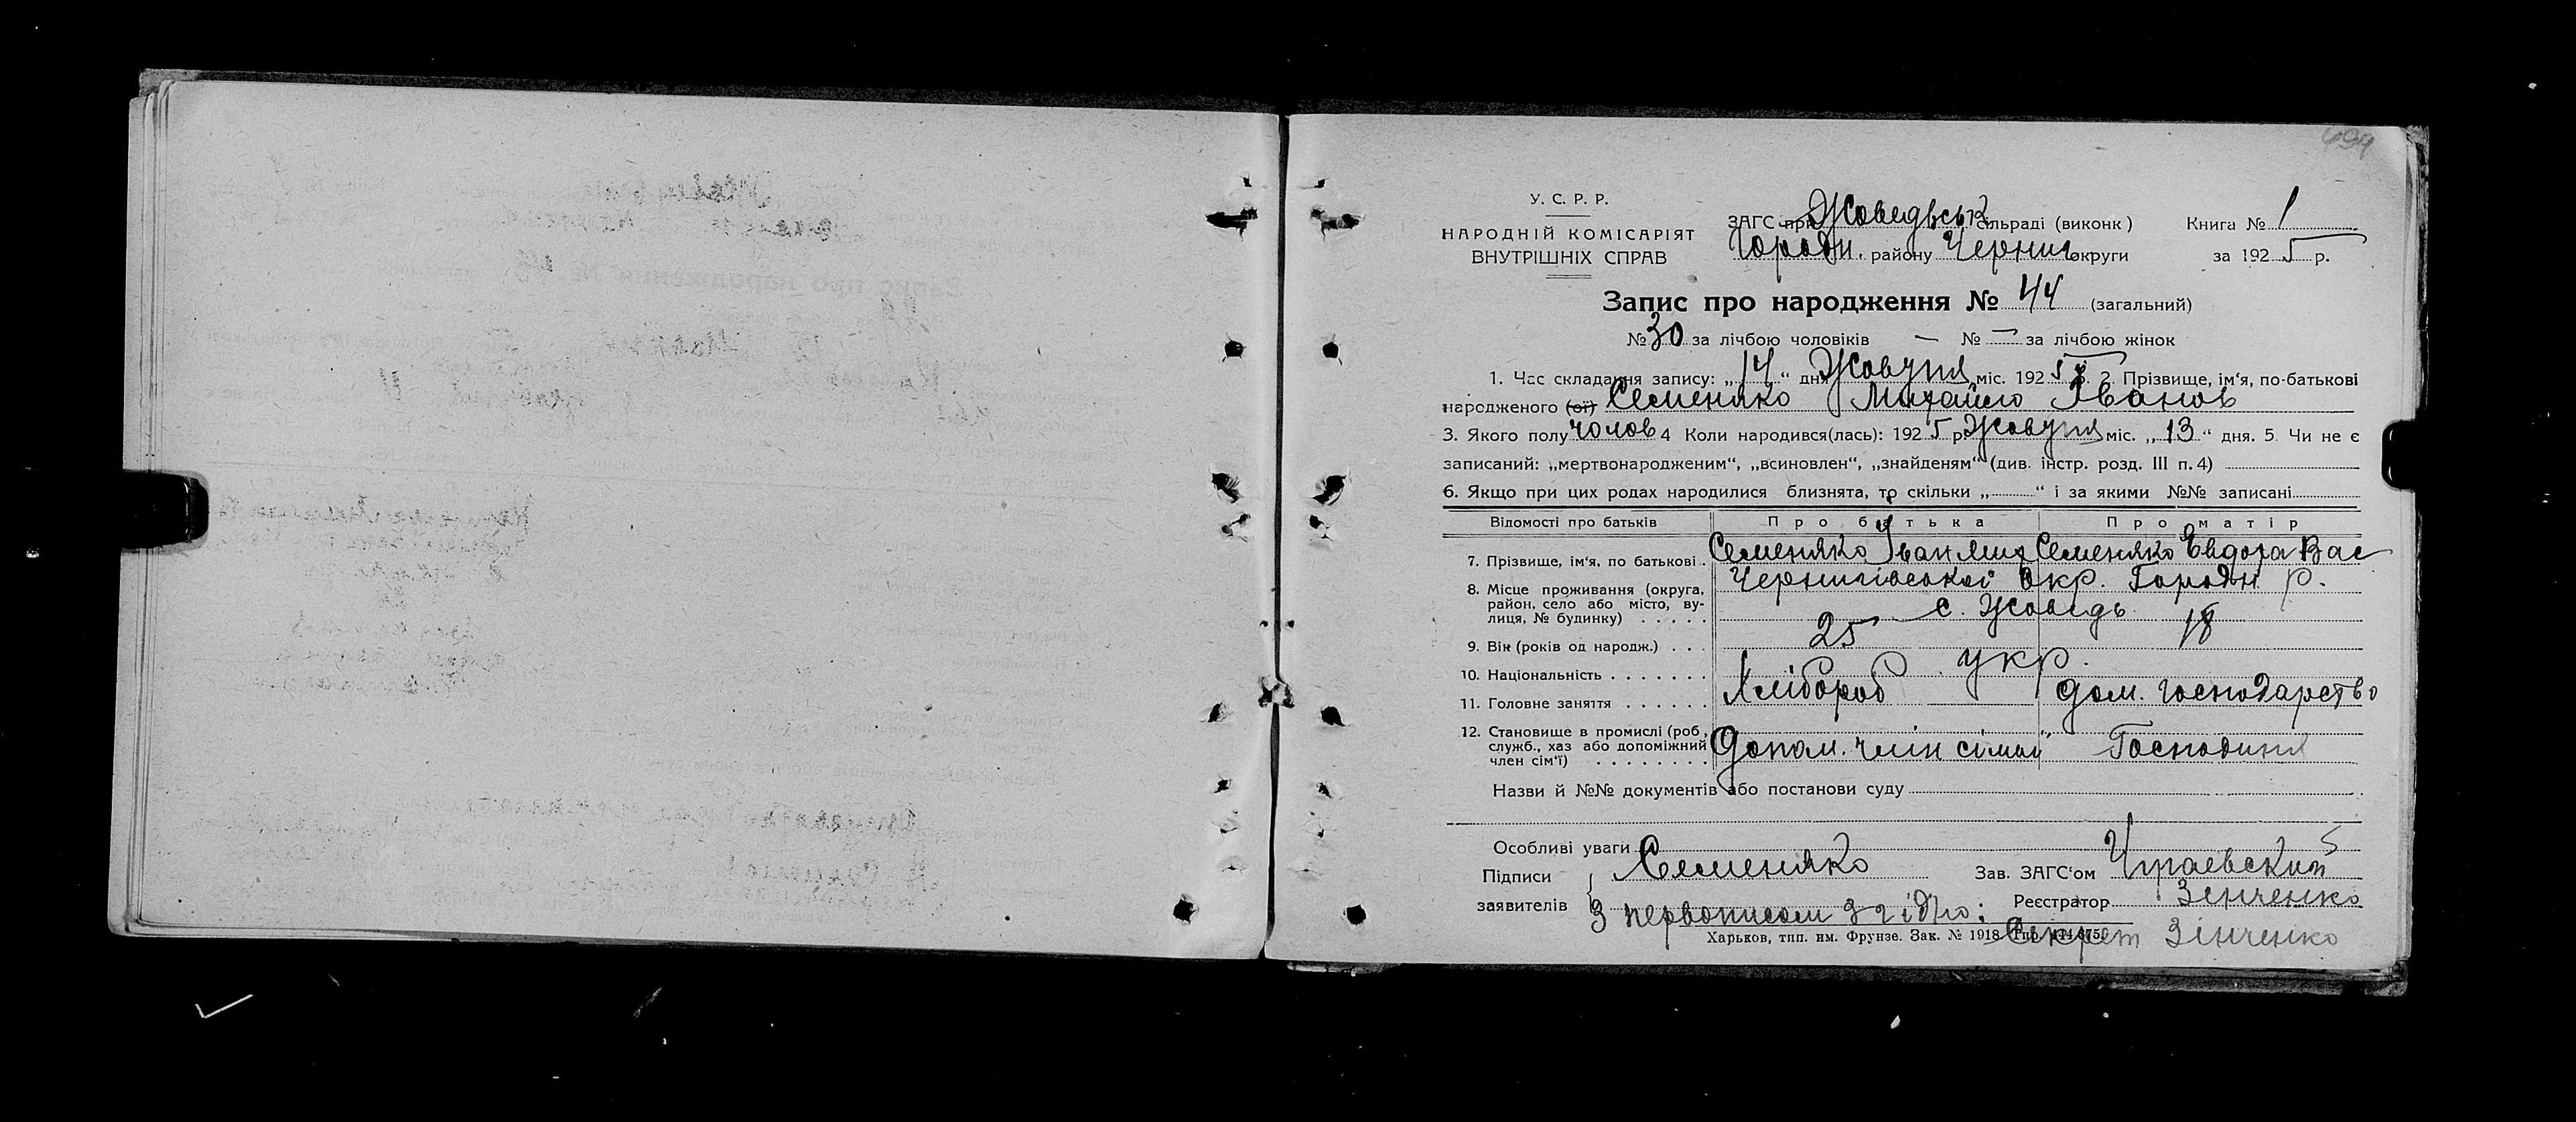 494
У. С. Р. Р.
НАРОДНІЙ КОМІСАРІЯТ
ВНУТРІШНІХ СПРАВ
ЗАГС при Жоведьськ сільраді (виконк)
Городн. району Черниг округи
Книга № 1
за 1925 р.
Запис про народження № 44 (загальний)
№ 30 за лічбою чоловіків — № — за лічбою жінок
1. Час складання запису: „14“ дня Жовтня міс. 1925 р. 2. Прізвище, ім‘я, по-батькові
народженого (ої) Семеняко Михайло Іванов
3. Якого полу чолов 4 Коли народився(лась): 1925 р Жовтня міс. „13“ дня. 5. Чи не є
записаний: „мертвонародженим“, „всиновлен“, „знайденям“ (див. інстр. розд. III п. 4)
6. Якщо при цих родах народилися близнята, то скільки „ “ і за якими №№ записані
Відомості про батьків Про батька Про матір
7. Прізвище, ім‘я, по батькові . Семеняко Іван Мих Семеняко Евдора Вас
8. Місце проживання (округа, район, село або місто, вулиця, № будинку) Чернигівської Окр. Городн р.
с. Жоведь
9. Вік (років од народж.) . . . 25 18
10. Національність . . . . . . . укр.
11. Головне заняття . . . . . . Хлібороб дом. господарство
12. Становище в промислі (роб, служб., хаз або допоміжний член сім‘ї) . . . . . . . . Допом. член сімьи Господиня
Назви й №№ документів або постанови суду
Особливі уваги
Підписи заявителів Семеняко
Зав. ЗАГС‘ом
Реєстратор Зінченко
З первописом згідно:
Секрет Зінченко
Харьков, тип. им. Фрунзе. Зак. № 1918